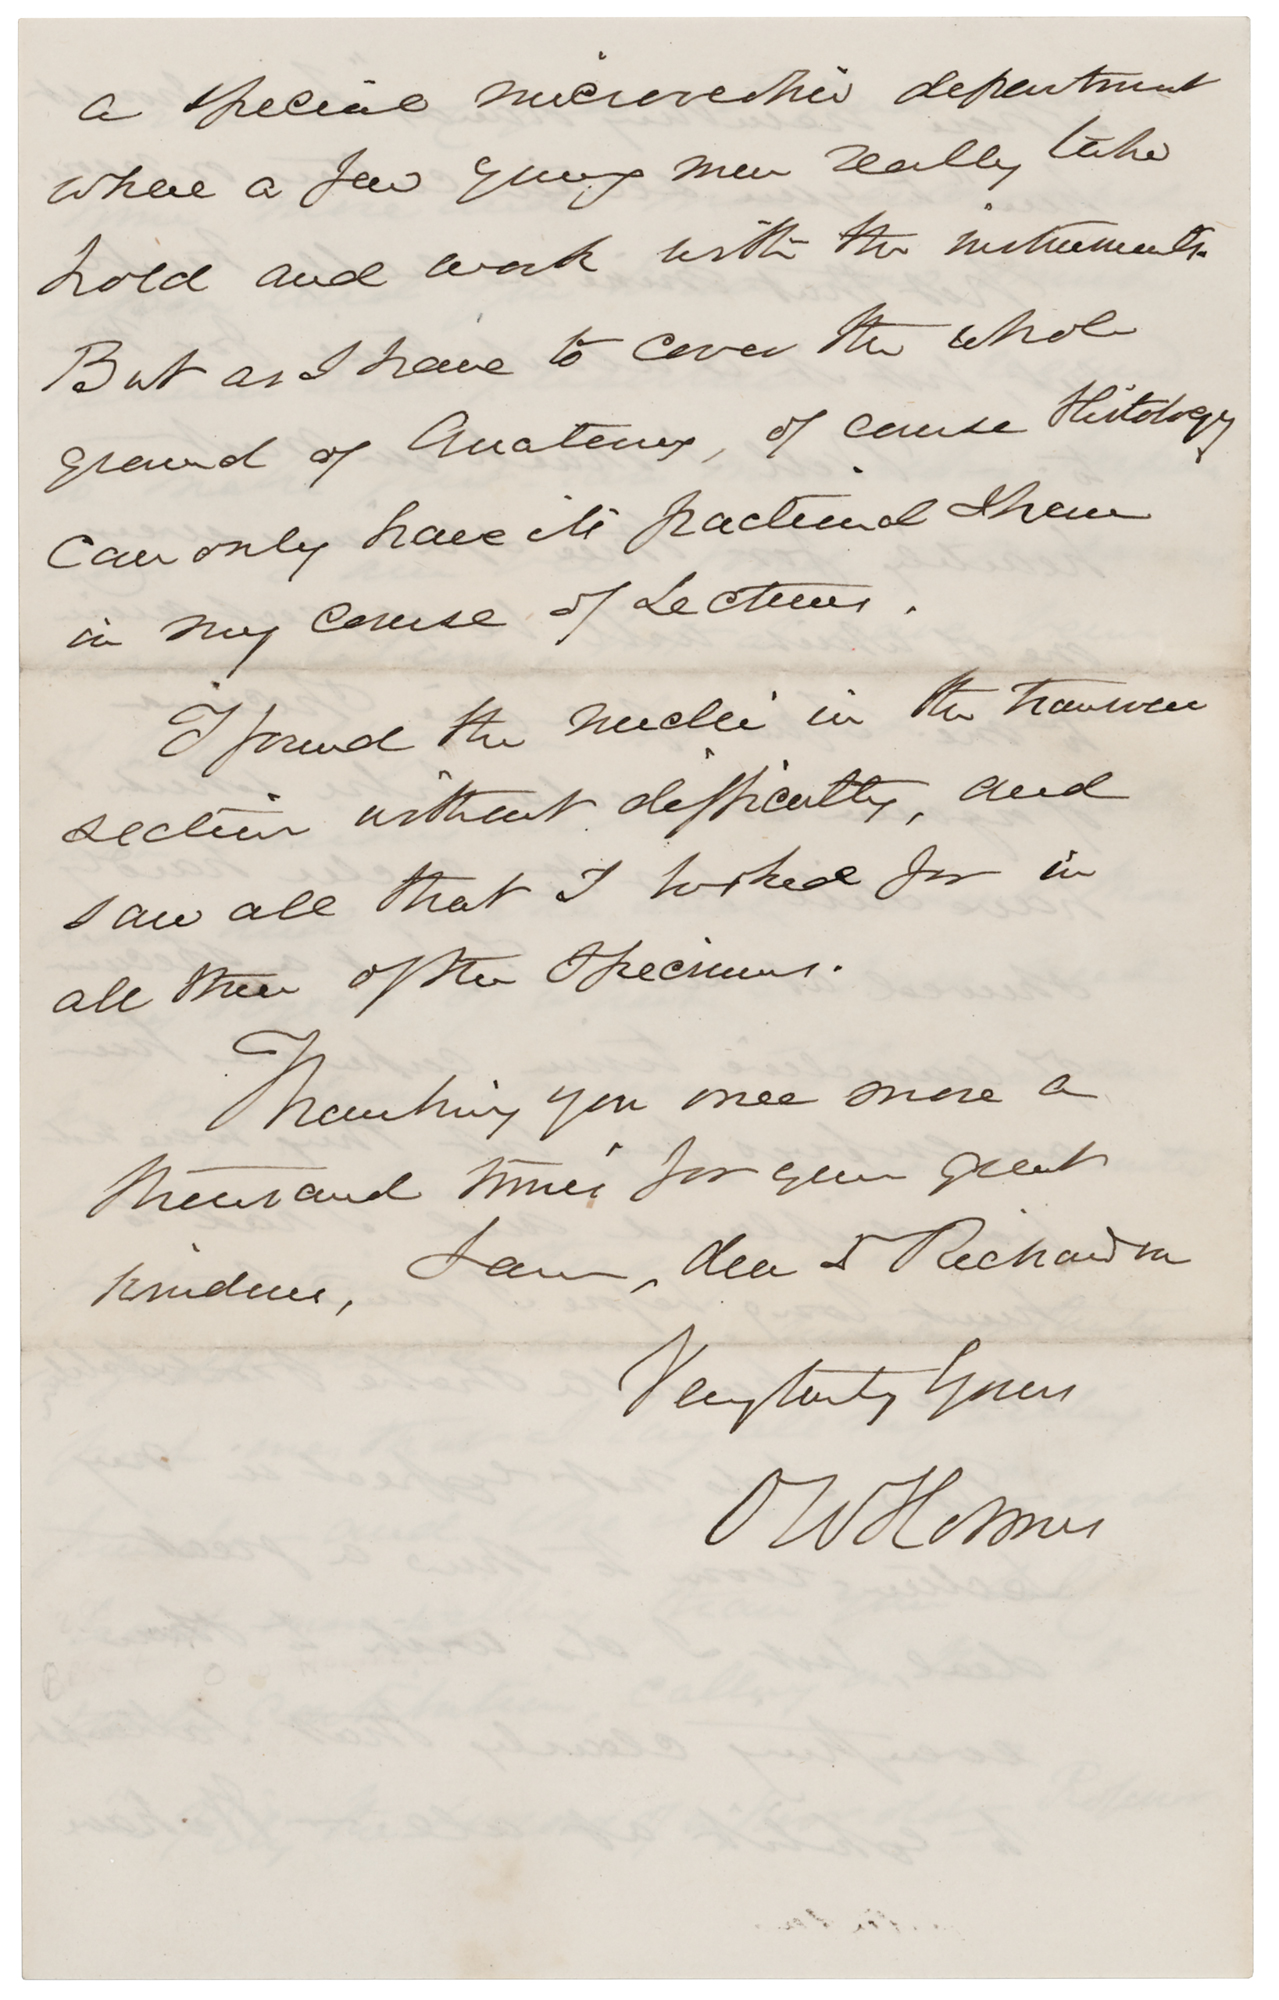 a special microscopic department
where a few young men really take
hold and work with the instruments.
But as I have to cover the whole
ground of Anatomy, of course Histology
can only have its fractional share
in my course of Lectures.
I found the nuclei in the transverse
section without difficulty, and
saw all that I looked for in
all three of the specimens.
Thanking you once more a
thousand times for your great
kindness, I am, dear Dr Richardson
Very truly Yours
O W Holmes